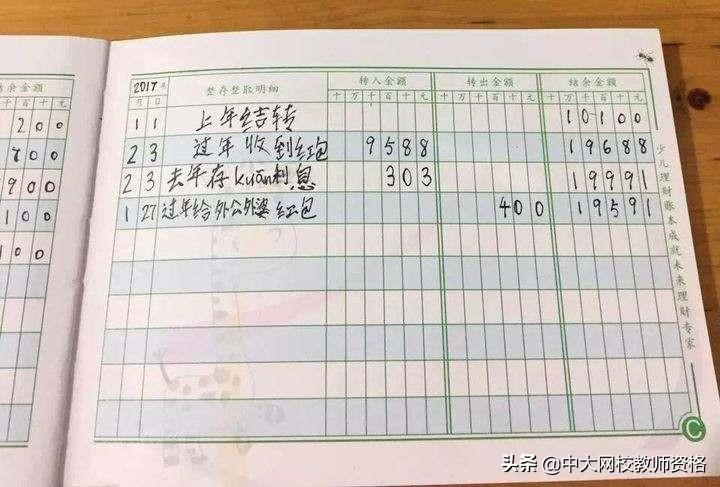 结余金额
千百十元
200
700
900
100
100
2017年 整存整取明细 转入金额 转出金额 结余金额
月 日 十万千百十元 十万千百十元 十万千百十元
1 1 上年结转 10100
2 3 过年收到红包 9588 19688
2 3 去年存kuǎn利息 303 19991
1 27 过年给外公外婆红包 400 19591
少儿理财账本成就未来理财专家
C
头条 @中大网校教师资格